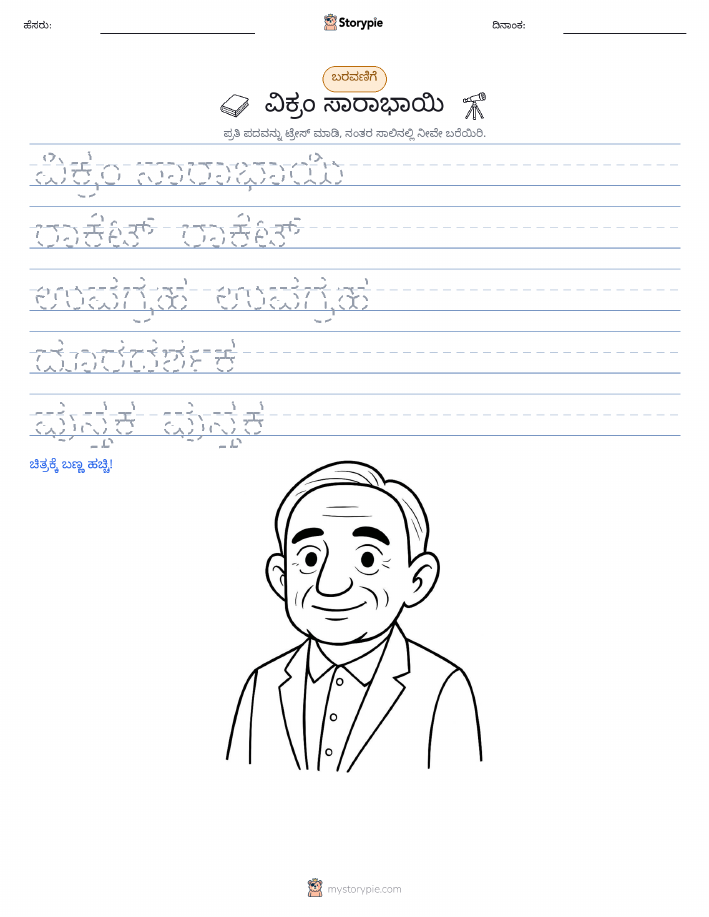 ಹೆಸರು:
Storypie
ದಿನಾಂಕ:
ಬರವಣಿಗೆ
ವಿಕ್ರಂ ಸಾರಾಭಾಯಿ
ಪ್ರತಿ ಪದವನ್ನು ಟ್ರೇಸ್ ಮಾಡಿ, ನಂತರ ಸಾಲಿನಲ್ಲಿ ನೀವೇ ಬರೆಯಿರಿ.
ವಿಕ್ರಂ ಸಾರಾಭಾಯಿ
ರಾಕೆಟ್ ರಾಕೆಟ್
ಉಪಗ್ರಹ ಉಪಗ್ರಹ
ದೂರದರ್ಶಕ
ಪುಸ್ತಕ ಪುಸ್ತಕ
ಚಿತ್ರಕ್ಕೆ ಬಣ್ಣ ಹಚ್ಚಿ!
mystorypie.com